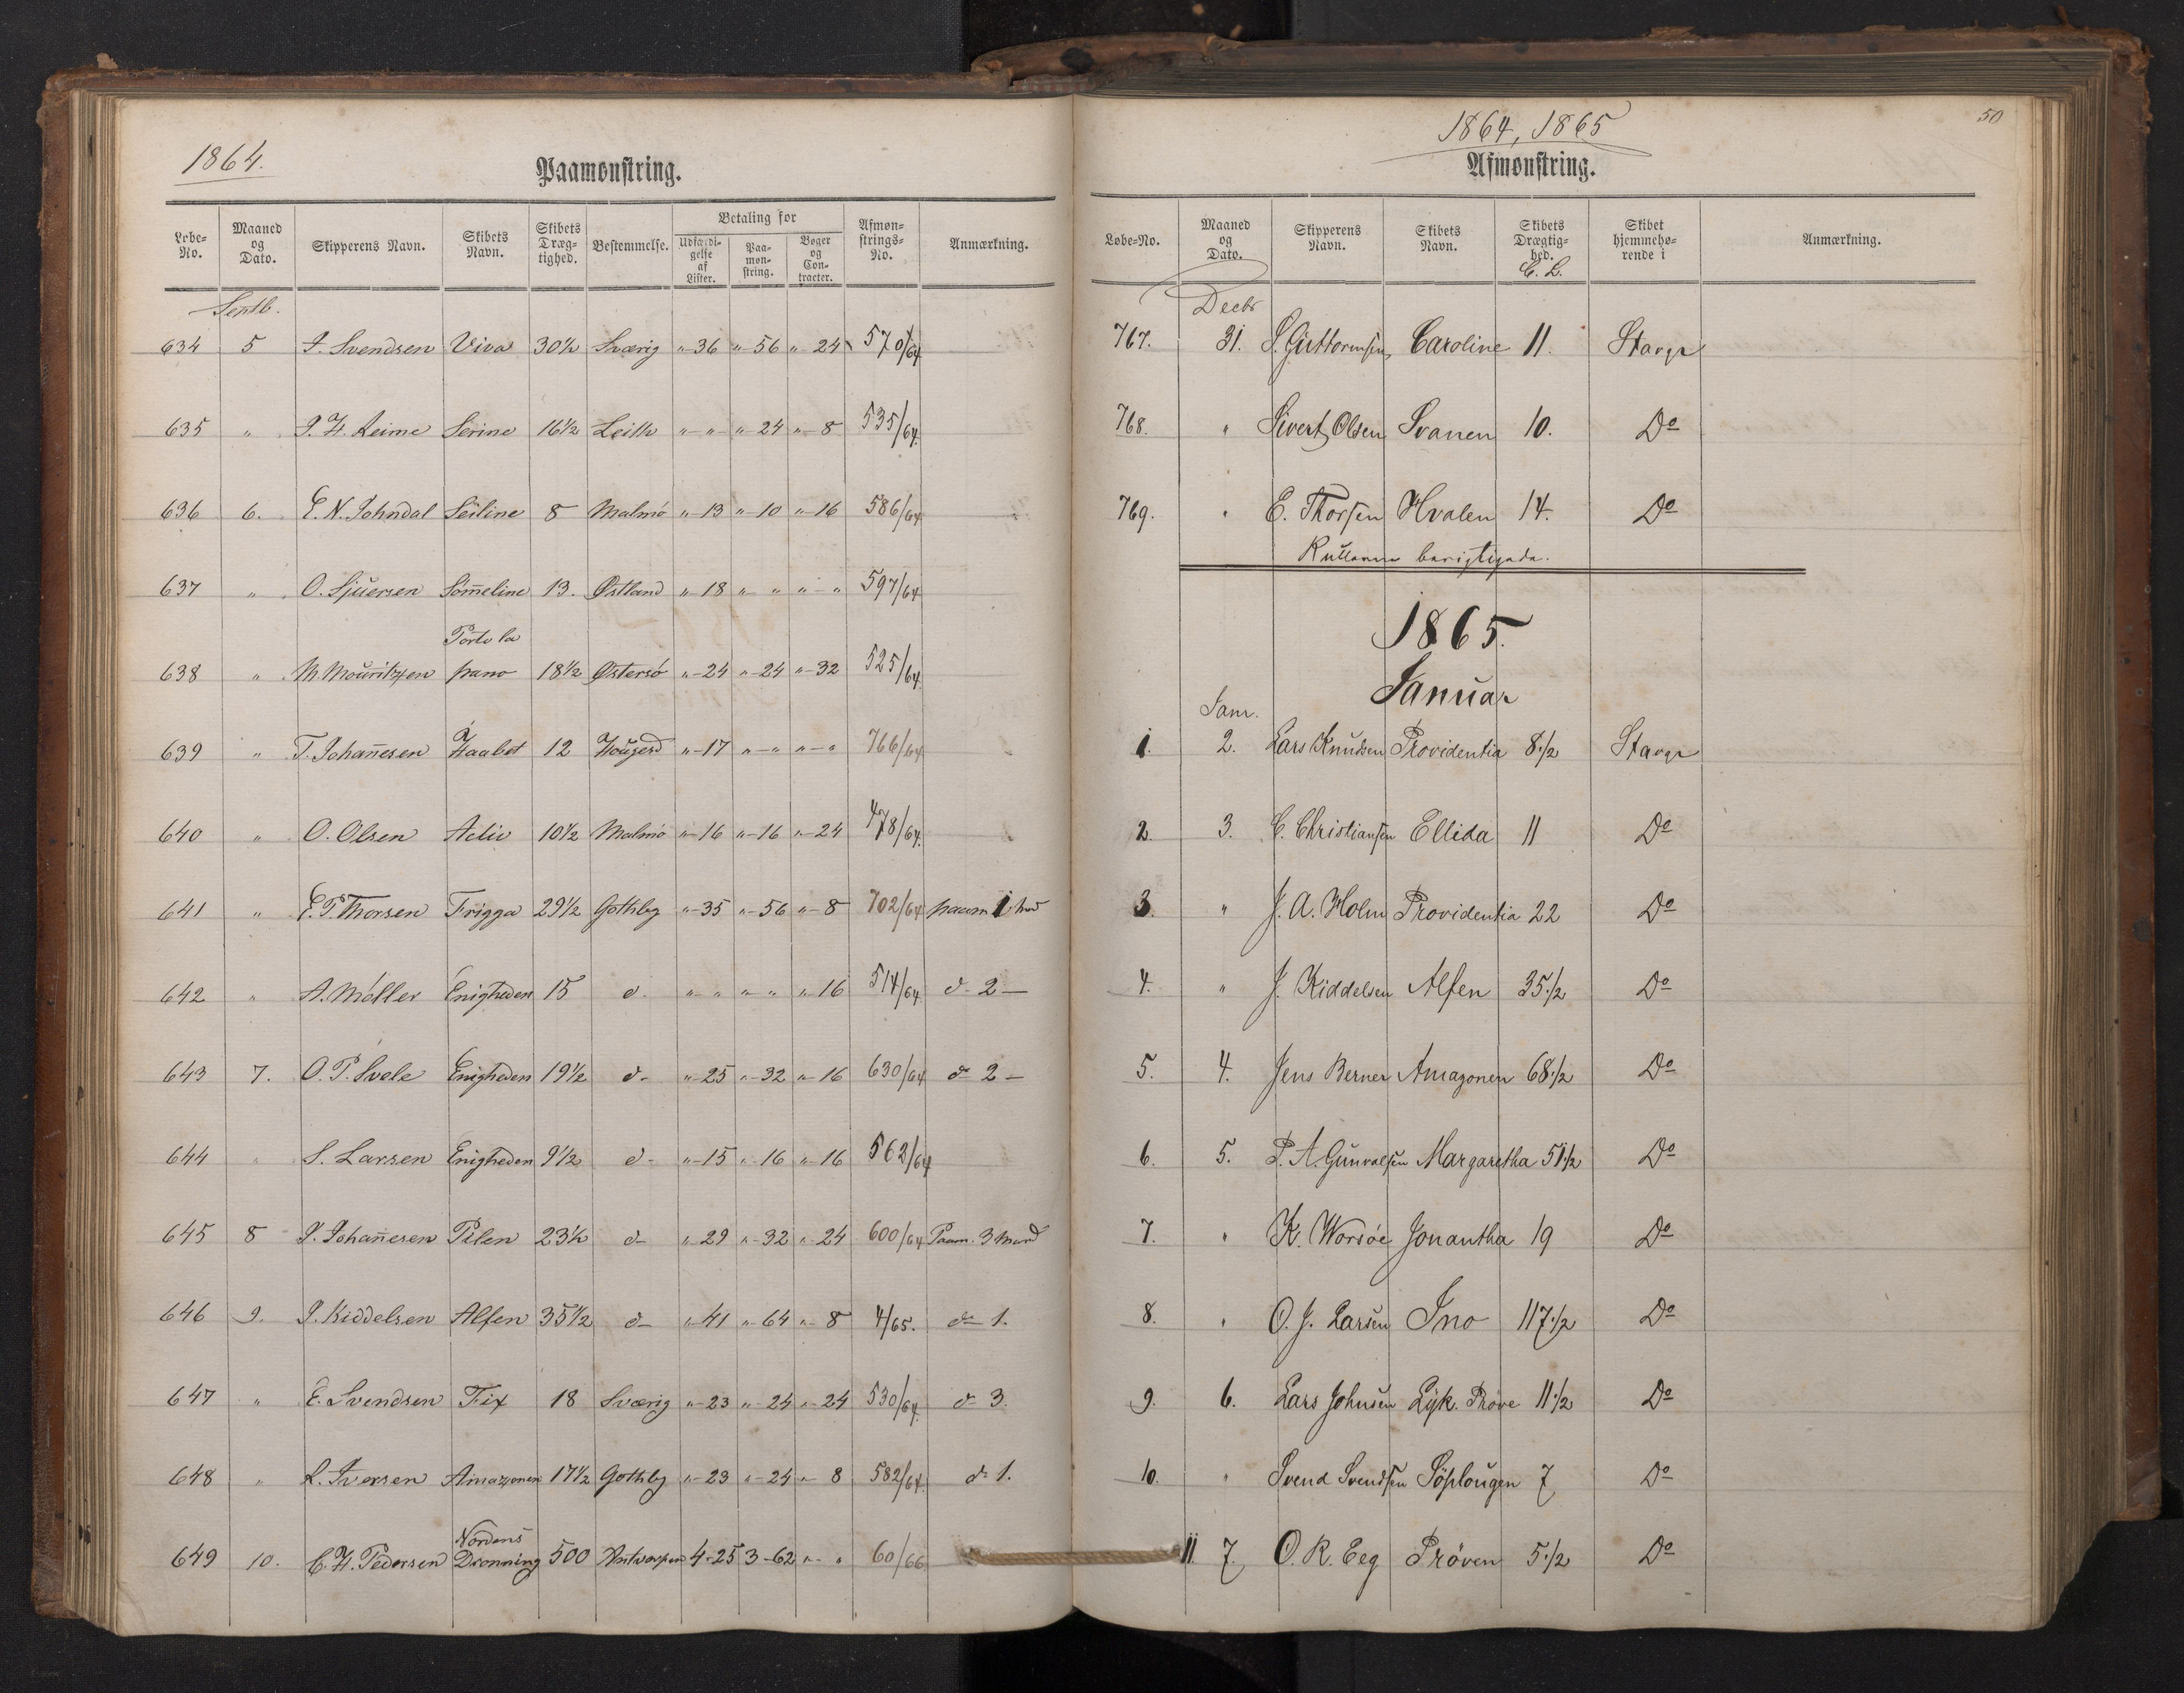 1864.
Paamønstring.
Løbe-No. Maaned og Dato. Skipperens Navn. Skibets Navn. Skibets Dræg-tighed. Bestemmelse. Betaling for Udfærdi-gelse af Lister. Paa-møn-string. Bøger og Con-tracter. Afmøn-strings-No. Anmærkning.
Septb.
634 5 S. Svendsen Viva 30½ Sværig "-36 "-56 "-24 570/64
635 " J. H. Reime Serine 16½ Leith "-" "-24 "-8 535/64
636 6. E. N. Johndal Seiline 8 Malmø "-13 "-10 "-16 586/64
637 " O. Sjuersen Sommeline 13. Østland "-18 "-" "-" 597/64
638 " M. Mouritzen Porto la pano 18½ Østersø "-24 "-24 "-32 525/64
639 " T. Johannesen Haabet 12 Hougesd "-17 "-" "-" 766/64
640 " O. Olsen Activ 10½ Malmø "-16 "-16 "-24 478/64
641 " E. P. Thorsen Frigga 29½ Gothbg "-35 "-56 "-8 702/64 paam 1 md
642 " A. Møller Enigheden 15 d- "-" "-" "-16 514/64 d- 2 -
643 7. O. P. Svele Enigheden 19½ d- "-25 "-32 "-16 630/64 d- 2 -
644 " S. Larsen Enigheden 9½ d- "-15 "-16 "-16 562/64
645 8 J. Johannesen Pilen 23½ d- "-29 "-32 "-24 600/64 Paam. 3 Mand
646 9. J. Kiddelsen Alfen 35½ d- "-41 "-64 "-8 4/65. d- 1.
647 " E. Svendsen Fix 18 Sværig "-23 "-24 "-24 530/64 d- 3.
648 " L. Iversen Amazonen 17½ Gothbg "-23 "-24 "-8 582/64 d- 1.
649 10. C. H. Pedersen Nordens Dronning 500 Antwerpen 4-25 3-62 "-" 60/66
50
1864, 1865
Afmønstring.
Løbe-No. Maaned og Dato. Skipperens Navn. Skibets Navn. Skibets Drægtig-hed. C. L. Skibet hjemmehø-rende i Anmærkning.
Decbr
767. 31. S. Guttormsen Caroline 11. Stavgr
768. " Sivert Olsen Svanen 10. Do
769. " E. Thorsen Hvalen 14. Do
Rullerne berigtigede.
1865.
Januar
Janr.
1. 2. Lars Knudsen Providentia 8½ Stavgr
2. 3. C. Christiansen Ellida 11 Do
3. " J. A. Holm Providentia 22 Do
4. " J. Kiddelsen Alfen 35½ Do
5. 4. Jens Berner Amazonen 68½ Do
6. 5. P. A. Gunvalsen Margaretha 51½ Do
7. " K. Worsøe Jonantha 19 Do
8. " O. J. Larsen Ino 117½ Do
9. 6. Lars Johnsen Lyk. Prøve 11½ Do
10. " Svend Svendsen Søplougen 7 Do
11 7. O. R. Eeg Prøven 5½ Do